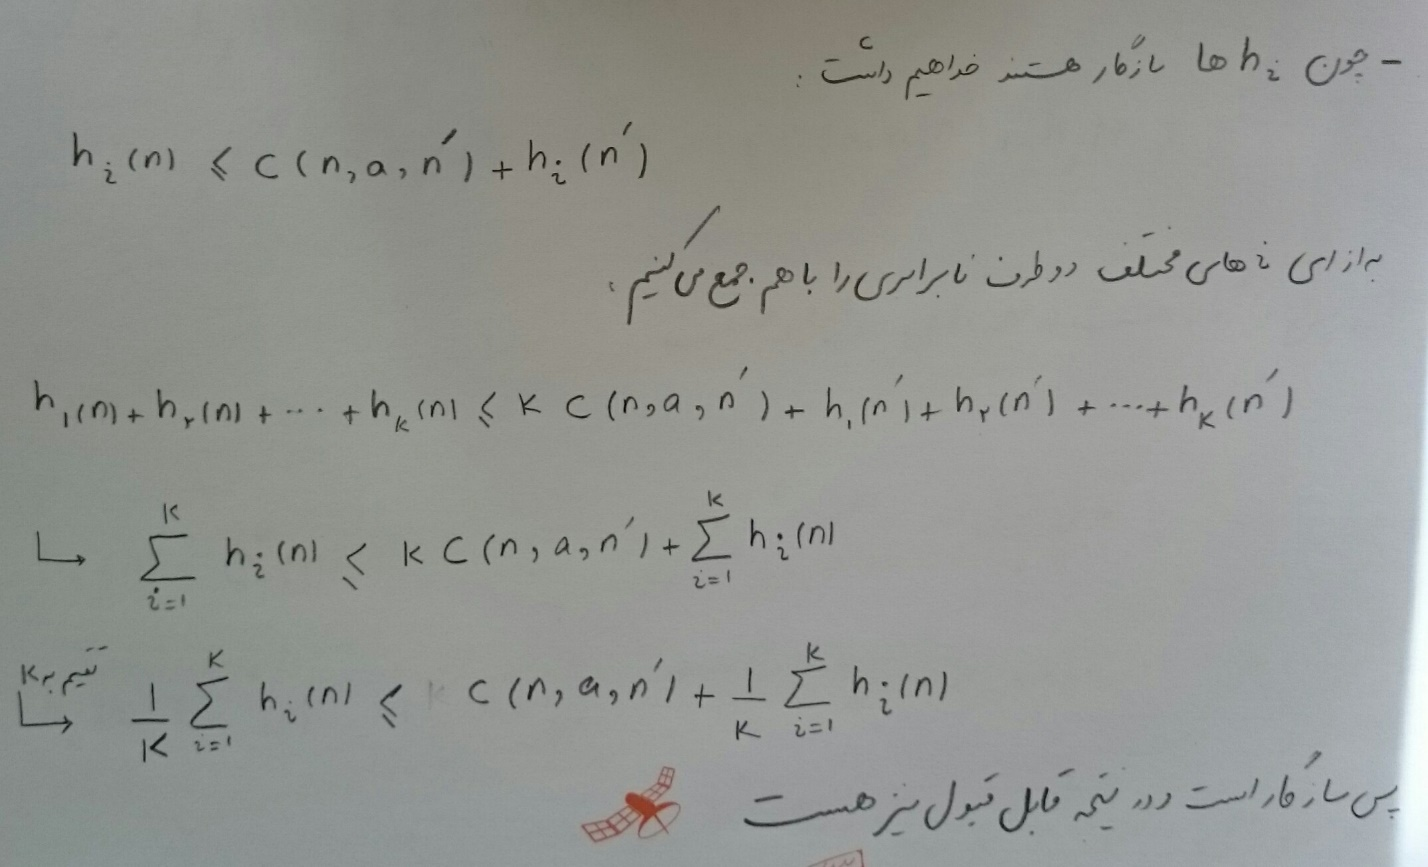 - چون hᵢ ها سازگار هستند خواهیم داشت :
hᵢ(n) ≤ c(n,a,n′) + hᵢ(n′)
به ازای i های مختلف دو طرف نابرابری را با هم جمع می‌کنیم :
h₁(n) + h۲(n) + ... + hₖ(n) ≤ k c(n,a,n′) + h₁(n′) + h۲(n′) + ... + hₖ(n′)
↳ Σ_{i=1}^{k} hᵢ(n) ≤ k c(n,a,n′) + Σ_{i=1}^{k} hᵢ(n)
تقسیم بر k ↳ 1/k Σ_{i=1}^{k} hᵢ(n) ≤ c(n,a,n′) + 1/k Σ_{i=1}^{k} hᵢ(n)
پس سازگار است و در نتیجه قابل قبول نیز هست